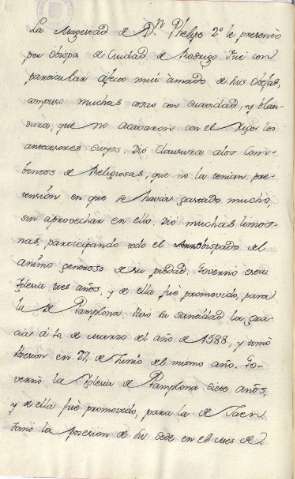 La Magestad de D.n Phelipe 2º le presento
por obispo de Ciudad de Rodrigo. Fue con
particular afecto mui amado de sus ovejas,
compuso muchas cosas con suavidad, y blan
dura, que no acavaron con el rigor los
antecesores suyos. Dio clausura a los Com
bentos de Religiosas, que no la tenian, pre
tension en que se havia gastado mucho,
sin aprovechar en ella. Dio muchas limos
nas, participando todo el Obispado del
animo generoso de su piedad. Governo esta
Iglesia tres años, y de ella fue promovido, para
la de Pamplona. Hizo su santidad la gra
cia á 14 de marzo del año de 1588, y tomó
posesion en de Junio del mismo año. Go
vernó la Iglesia de Pamplona siete años,
y de ella fue promovido, para la de Jaen
tomó la posesion de su sede en el mes de